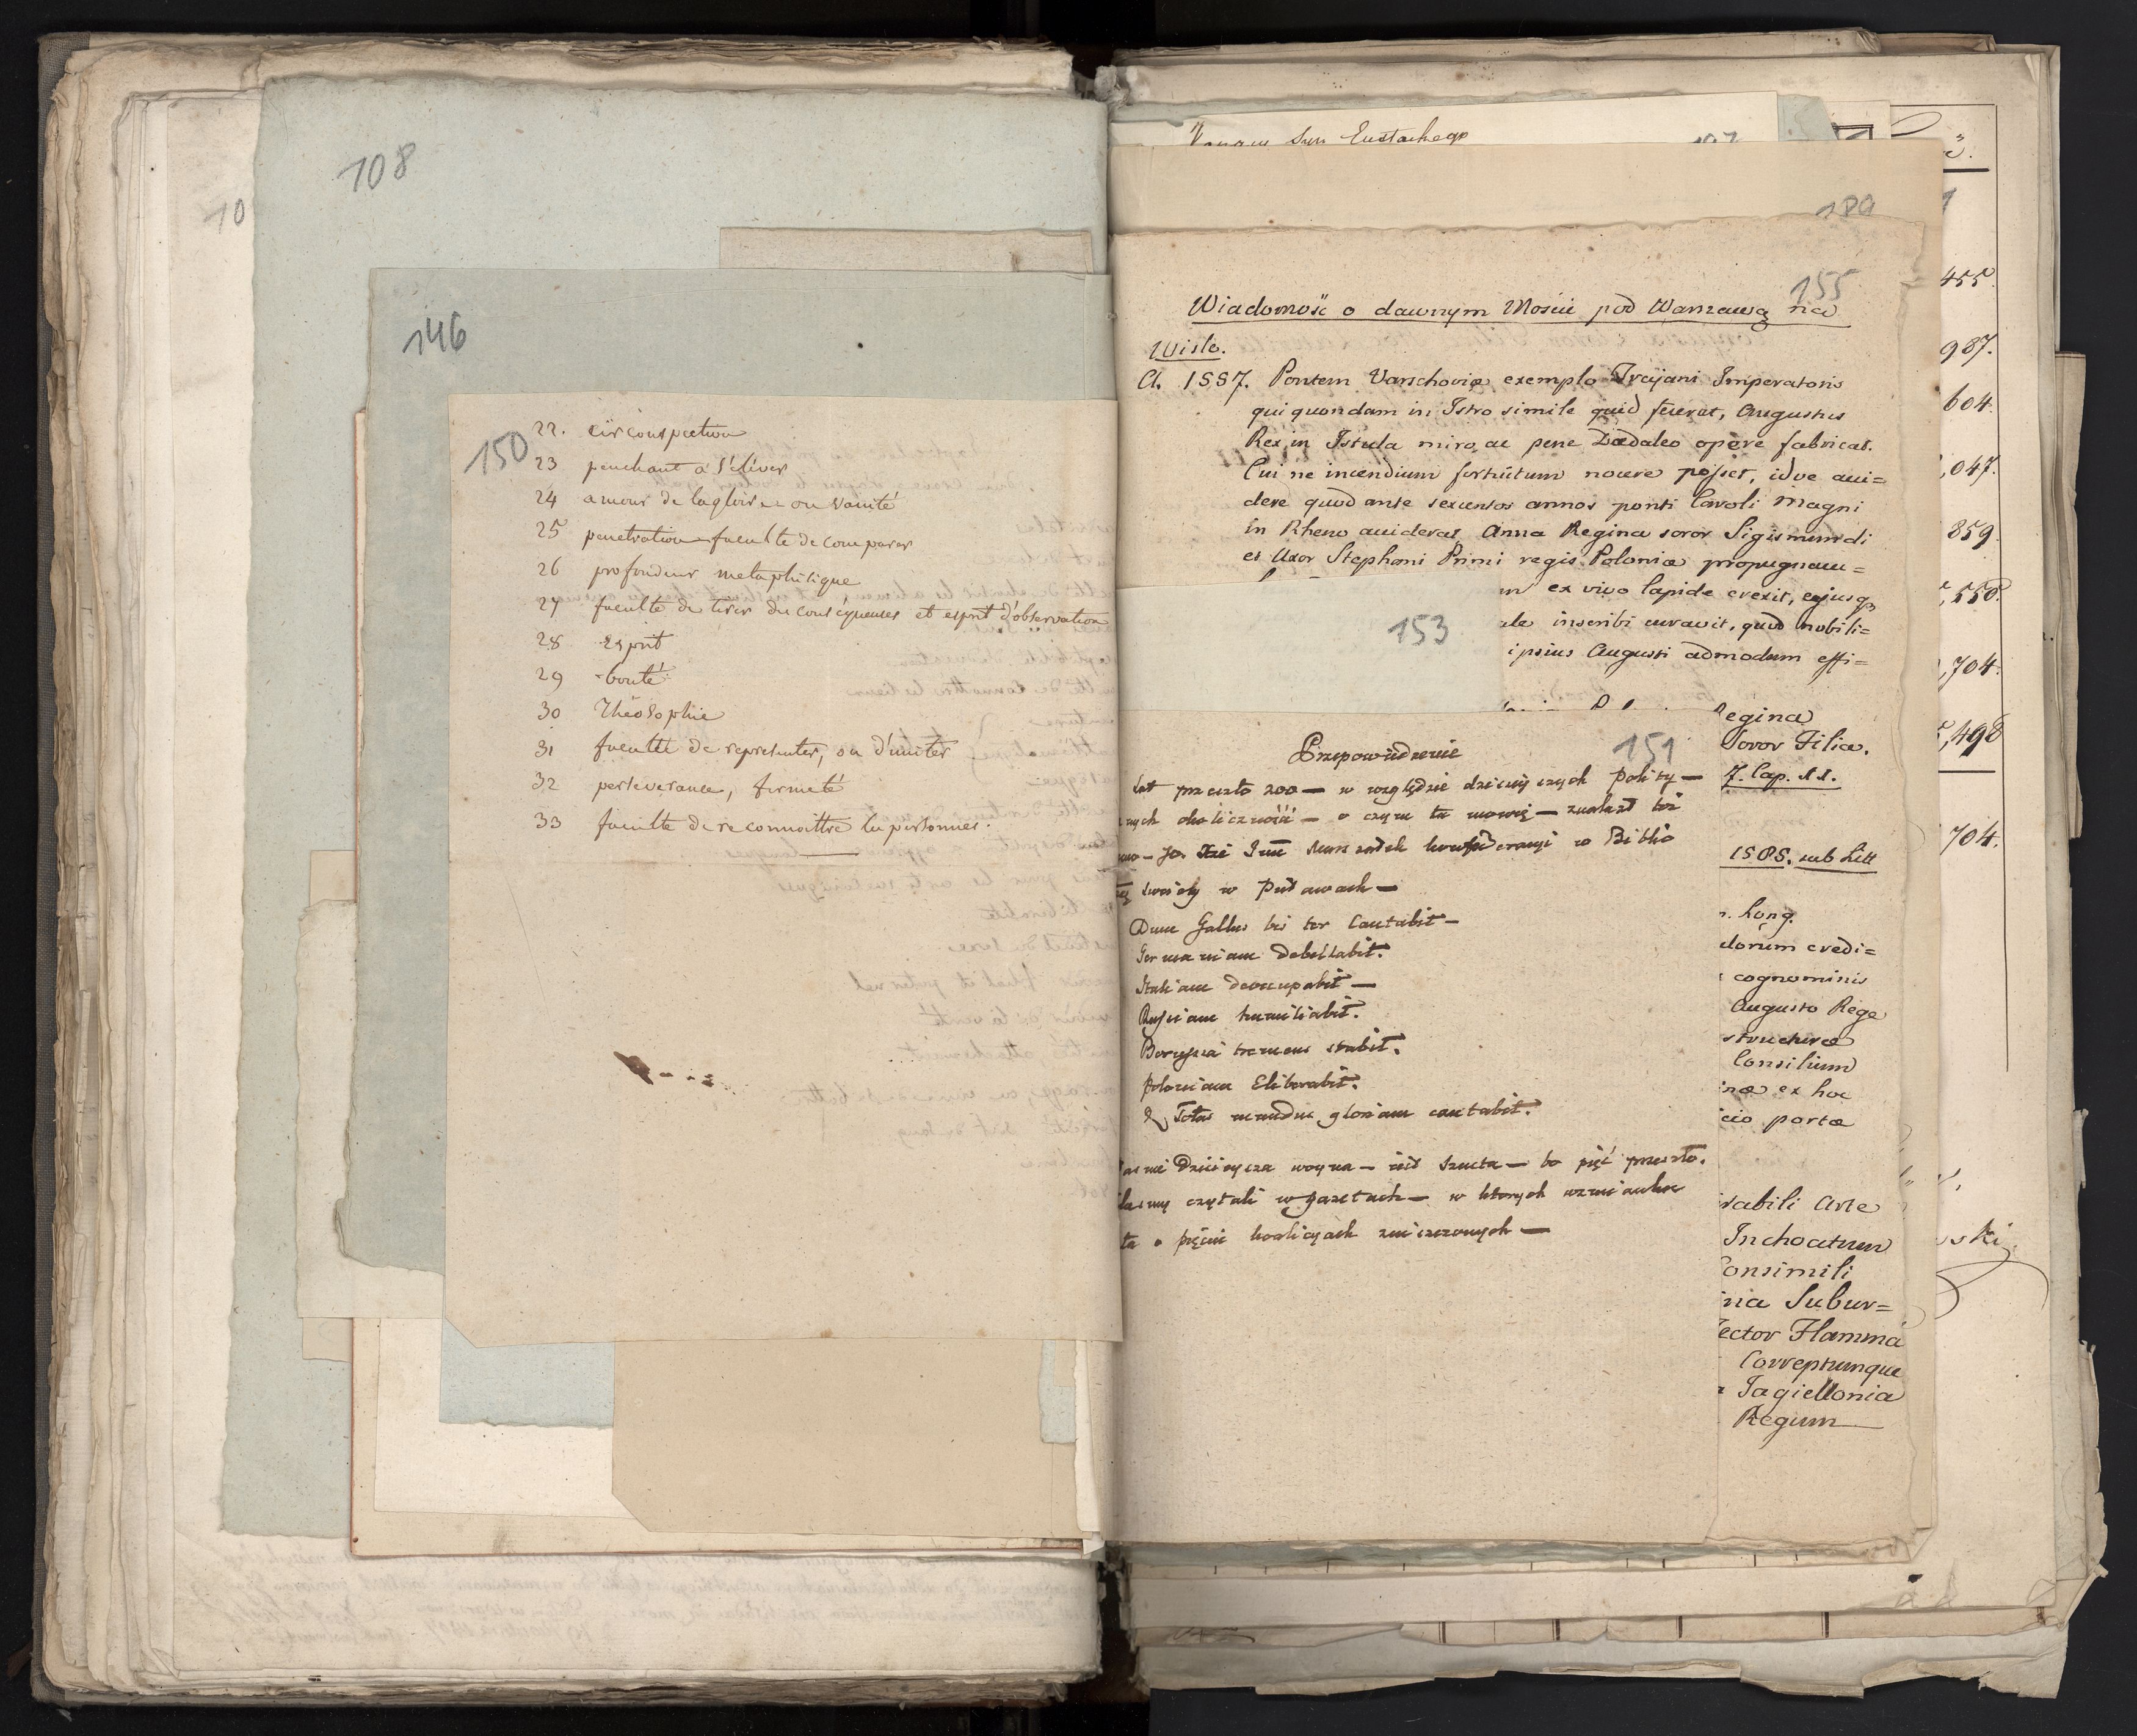 108
10
146
150
22. circonspection
23 penchant a s'éléver
24 amour de la gloire ou vanité
25 penetration faculte de comparer
26 profondeur metaphisique
27 faculte de tirer des conséquenses et esprit d'observation
28 Esprit
29 bonté
30 Théosophie
31 faculté de representer, ou d'imiter
32 perseverance, fermeté
33 faculte de reconnaitre les personnes.
Eustachego
189
155
Wiadomość o dawnym Moście pod Warszawą na
Wiśle.
A. 1557. Pontem Varschoviæ exemplo Trajani Imperatoris
qui quondam in Istro simile quid fecerat, Augustus
Rex in Istula miro, ac pene Dædaleo opere fabricat.
Cui ne incendium fortuitum nocere posset, idve acci=
dere quod ante sexcentos annos ponti Caroli Magni
in Rheno acciderat Anna Regina soror Sigismundi
et Uxor Stephani Primi regis Poloniæ propugnacu=
ex vivo lapide erexit, ejusq
inscribi curavit, quod nobili=
ipsius Augusti admodum effi=
153
Regina
Soror Filia.
7. Cap. II.
1585. sub Litt
n. Long.
dorum credi=
cognominis
Augusto Rege
structura
Consilium
inæ ex hoc
cio porta
rabili Arte
Inchoatum
Consimili
ina Subur=
Tector Flammá
Correptumque
Jagiellonia
Regum
151
Przepowiedzenie
lat przeszło 200 — w względzie dzisieyszych polity—
nych okoliczności — o czym tu mowię — znalazł też
Jo. Xże Imć Marszałek konfederacyi w Biblio
swoiey w Puławach —
Dum Gallus bis ter Cantabit —
Germaniam debellabit.
Italiam deoccupabit —
Russiam humiliabit.
Borussia tremens stabit.
Poloniam Eliberabit.
& Totus mundus gloriam cantabit.
dzisieysza woyna — iest szusta — bo pięć przeszło.
czytali w gazetach — w ktorych wzmianka
o pięciu koalicyach zniszczonych —
455.
987.
604.
,047.
859.
,550.
,704.
,498
704.
ski